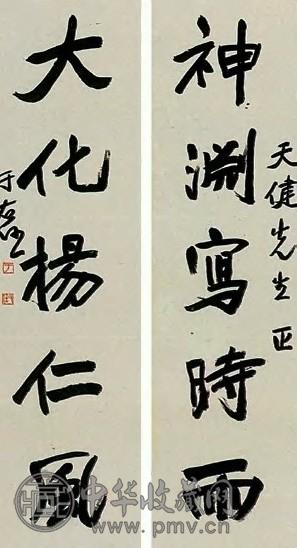 神淵寫時雨
天健先生正
大化楊仁風
于右任
中华收藏网
www.pmv.cn